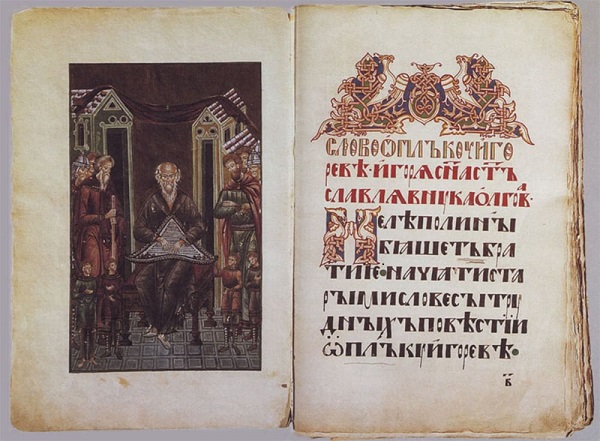 СЛОВОѠПЛЪКОУИГО
РЕВѢ·ИГОРѦСН҃АСТЪ
СЛАВЛѦВНꙊКАОЛГОВА·
НЕЛѢПОЛИНЫ
БѦШЕТЪБРА
ТИЕ·НАЧѦТИСТА
РЫМИСЛОВЕСЫТРꙊ
ДНЫХЪПОВѢСТІИ
ѠПЛЪКꙊИГОРЕВѢ·
В҃